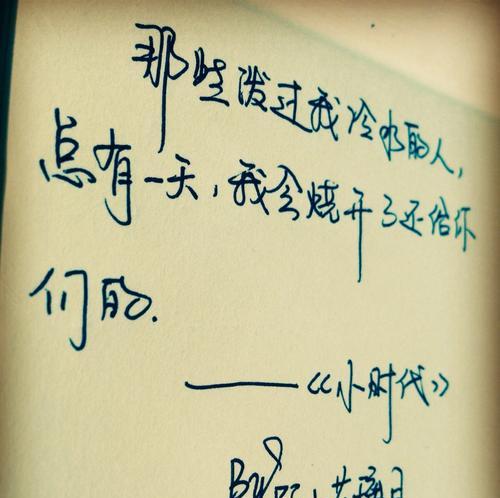 那些泼过我冷水的人,
总有一天,我会烧开了还给你
们的.
——《小时代》